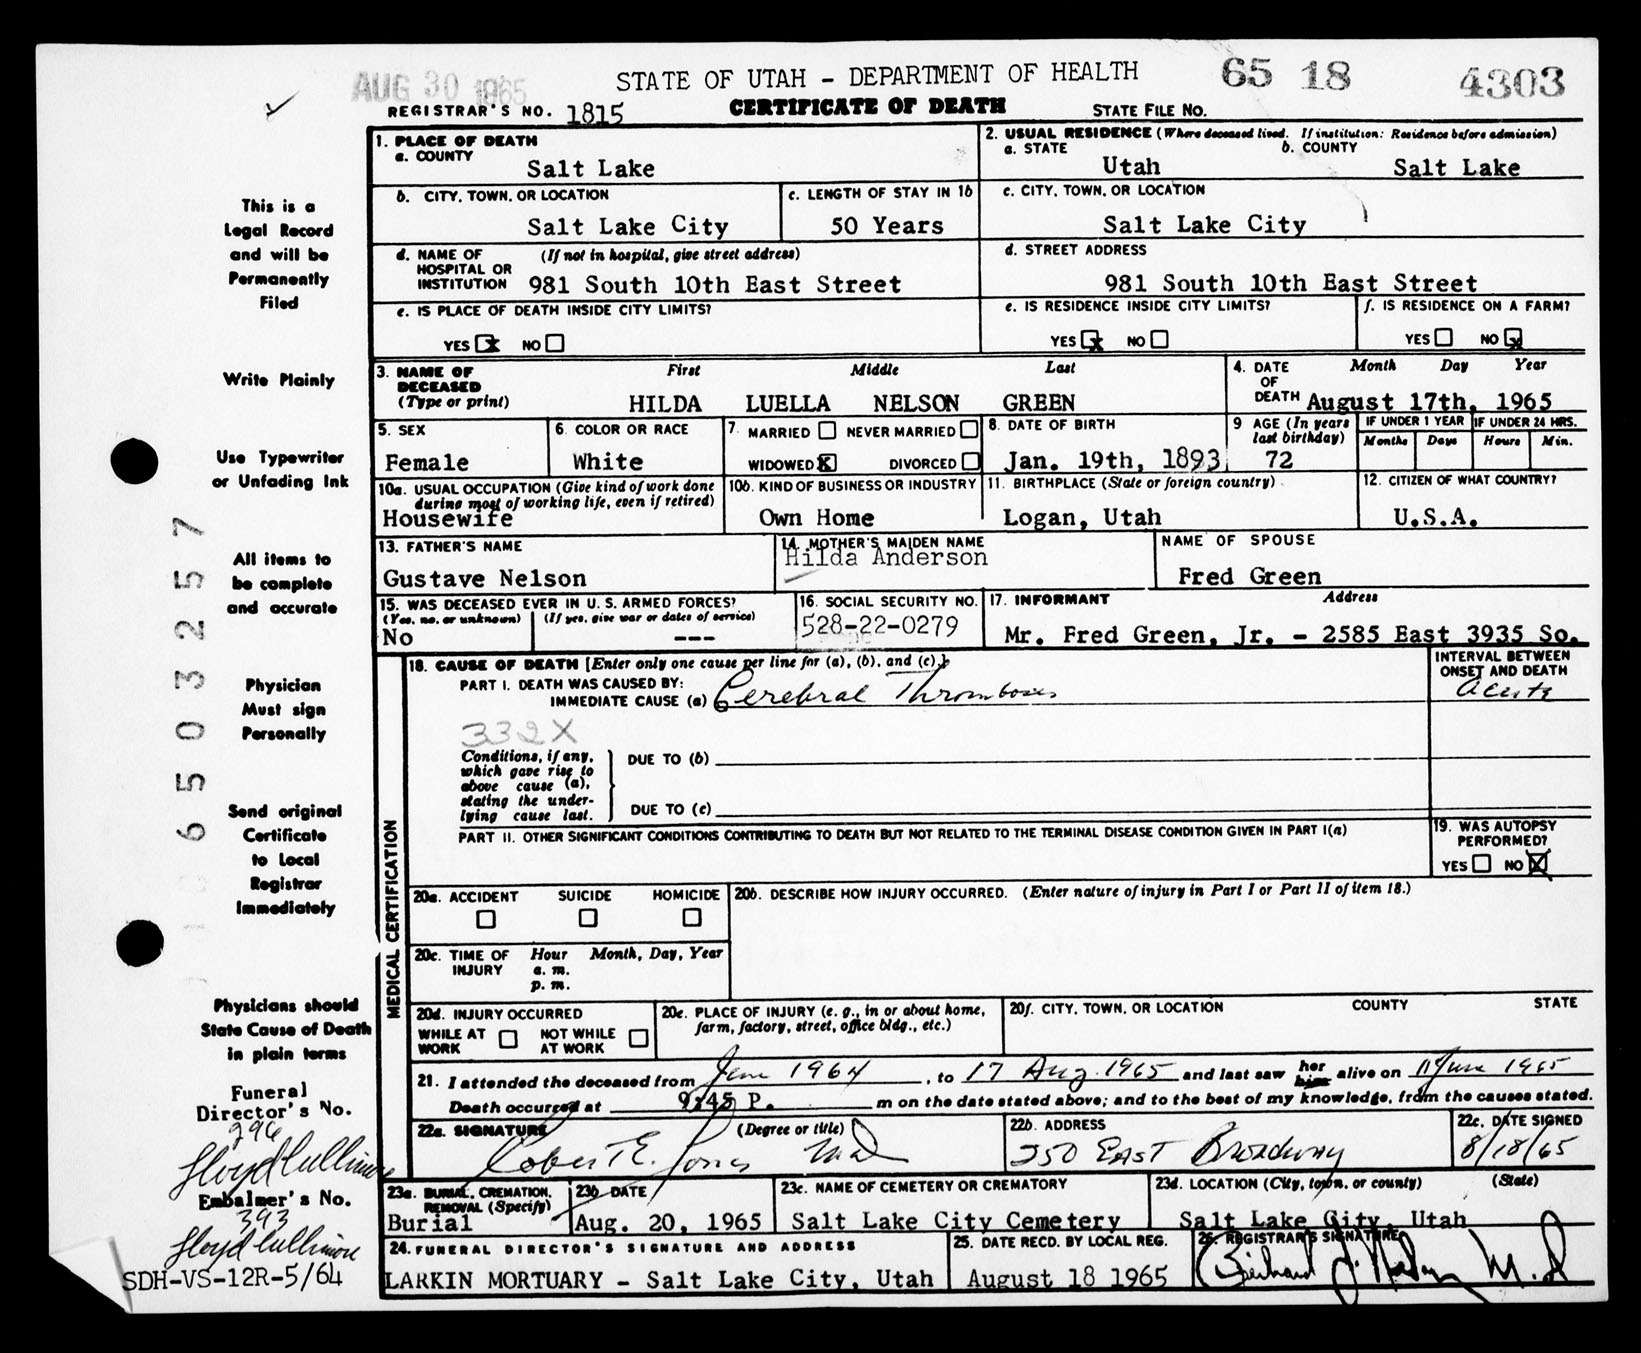 AUG 30 1965
STATE OF UTAH - DEPARTMENT OF HEALTH
65 18 4303
REGISTRAR'S NO. 1815
CERTIFICATE OF DEATH
STATE FILE NO.
1. PLACE OF DEATH
a. COUNTY
Salt Lake
2. USUAL RESIDENCE (Where deceased lived. If institution: Residence before admission)
a. STATE b. COUNTY
Utah Salt Lake
b. CITY, TOWN, OR LOCATION
Salt Lake City
c. LENGTH OF STAY IN 1b
50 Years
c. CITY, TOWN, OR LOCATION
Salt Lake City
d. NAME OF HOSPITAL OR INSTITUTION (If not in hospital, give street address)
981 South 10th East Street
d. STREET ADDRESS
981 South 10th East Street
e. IS PLACE OF DEATH INSIDE CITY LIMITS?
YES X NO
e. IS RESIDENCE INSIDE CITY LIMITS?
YES X NO
f. IS RESIDENCE ON A FARM?
YES NO X
3. NAME OF DECEASED (Type or print)
First Middle Last
HILDA LUELLA NELSON GREEN
4. DATE OF DEATH
Month Day Year
August 17th, 1965
5. SEX
Female
6. COLOR OR RACE
White
7. MARRIED NEVER MARRIED
WIDOWED X DIVORCED
8. DATE OF BIRTH
Jan. 19th, 1893
9 AGE (In years last birthday)
72
IF UNDER 1 YEAR
Months Days
IF UNDER 24 HRS.
Hours Min.
10a. USUAL OCCUPATION (Give kind of work done during most of working life, even if retired)
Housewife
10b. KIND OF BUSINESS OR INDUSTRY
Own Home
11. BIRTHPLACE (State or foreign country)
Logan, Utah
12. CITIZEN OF WHAT COUNTRY?
U.S.A.
13. FATHER'S NAME
Gustave Nelson
14. MOTHER'S MAIDEN NAME
Hilda Anderson
NAME OF SPOUSE
Fred Green
15. WAS DECEASED EVER IN U.S. ARMED FORCES?
(Yes, no, or unknown) (If yes, give war or dates of service)
No ---
16. SOCIAL SECURITY NO.
528-22-0279
17. INFORMANT Address
Mr. Fred Green, Jr. - 2585 East 3935 So.
MEDICAL CERTIFICATION
18. CAUSE OF DEATH [Enter only one cause per line for (a), (b), and (c).]
PART I. DEATH WAS CAUSED BY:
IMMEDIATE CAUSE (a) Cerebral Thrombosis
INTERVAL BETWEEN ONSET AND DEATH
acute
332X
Conditions, if any, which gave rise to above cause (a), stating the under-lying cause last.
DUE TO (b)
DUE TO (c)
PART II. OTHER SIGNIFICANT CONDITIONS CONTRIBUTING TO DEATH BUT NOT RELATED TO THE TERMINAL DISEASE CONDITION GIVEN IN PART I(a)
19. WAS AUTOPSY PERFORMED?
YES NO X
20a. ACCIDENT SUICIDE HOMICIDE
20b. DESCRIBE HOW INJURY OCCURRED. (Enter nature of injury in Part I or Part II of item 18.)
20c. TIME OF INJURY Hour Month, Day, Year
a. m.
p. m.
20d. INJURY OCCURRED
WHILE AT WORK NOT WHILE AT WORK
20e. PLACE OF INJURY (e. g., in or about home, farm, factory, street, office bldg., etc.)
20f. CITY, TOWN, OR LOCATION COUNTY STATE
21. I attended the deceased from 1964, to 17 Aug. 1965 and last saw her him alive on June 1965
Death occurred at 9:45 P. m on the date stated above; and to the best of my knowledge, from the causes stated.
22a. SIGNATURE (Degree or title)
Robert E. Jones MD
22b. ADDRESS
250 EAST Broadway
22c. DATE SIGNED
8/18/65
23a. BURIAL, CREMATION, REMOVAL (Specify)
Burial
23b DATE
Aug. 20, 1965
23c. NAME OF CEMETERY OR CREMATORY
Salt Lake City Cemetery
23d. LOCATION (City, town, or county) (State)
Salt Lake City, Utah
24. FUNERAL DIRECTOR'S SIGNATURE AND ADDRESS
LARKIN MORTUARY - Salt Lake City, Utah
25. DATE RECD. BY LOCAL REG.
August 18 1965
26. REGISTRAR'S SIGNATURE
M.D
This is a
Legal Record
and will be
Permanently
Filed
Write Plainly
Use Typewriter
or Unfading Ink
All items to
be complete
and accurate
Physician
Must sign
Personally
Send original
Certificate
to Local
Registrar
Immediately
Physicians should
State Cause of Death
in plain terms
Funeral
Director's No.
296
Lloyd Cullimore
Embalmer's No.
393
Lloyd Cullimore
SDH-VS-12R-5/64
65032257